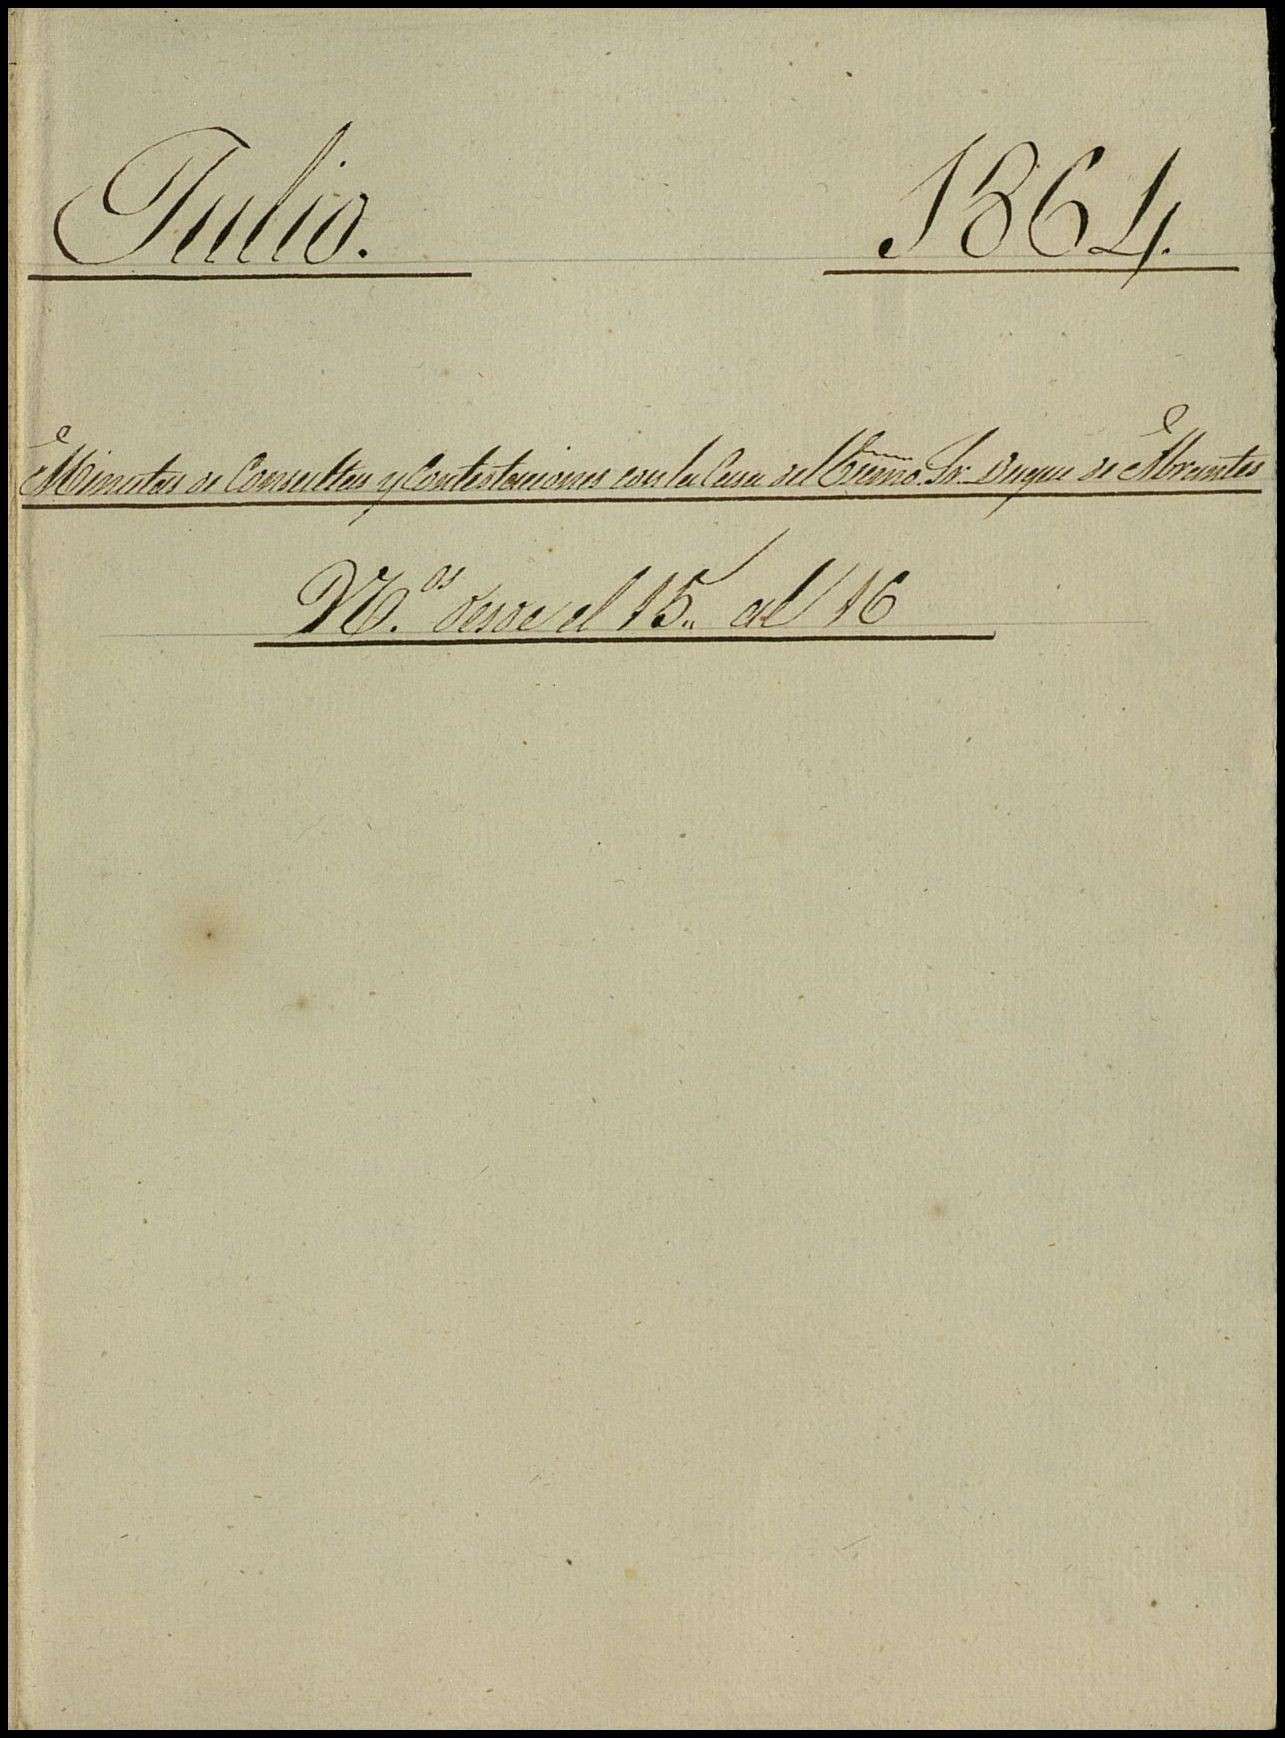 Julio. 1864.
Minutas de Consultas y Contestaciones con la Casa del Excmo. Sr. Duque de Abrantes
N.os desde el 15 al 16